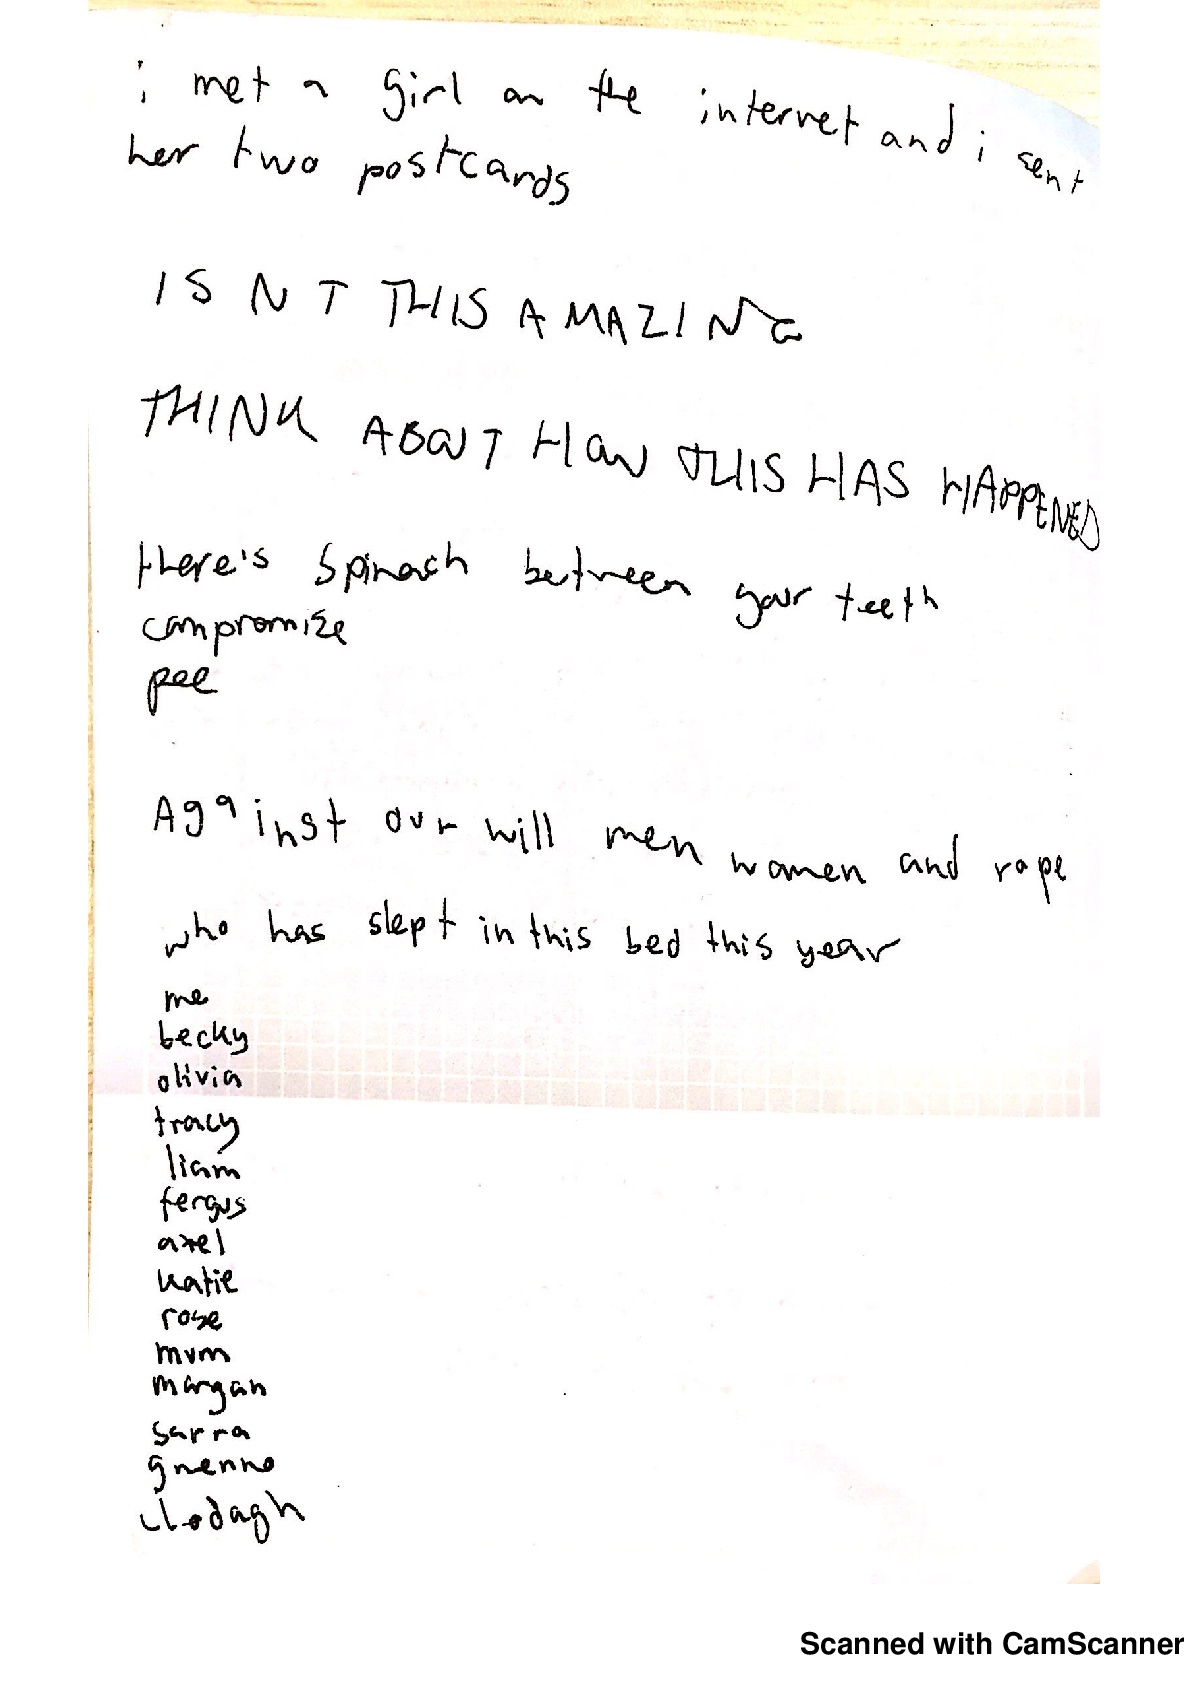 i met a girl on the internet and i sent
her two postcards
ISNT THIS AMAZING
THINK ABOUT HOW THIS HAS HAPPENED
there's spinach between your teeth
compromize
pee
Against our will men women and rape
who has slept in this bed this year
me
becky
olivia
tracy
liam
fergus
axel
katie
rose
mum
morgan
sarra
gwenno
clodagh
Scanned with CamScanner